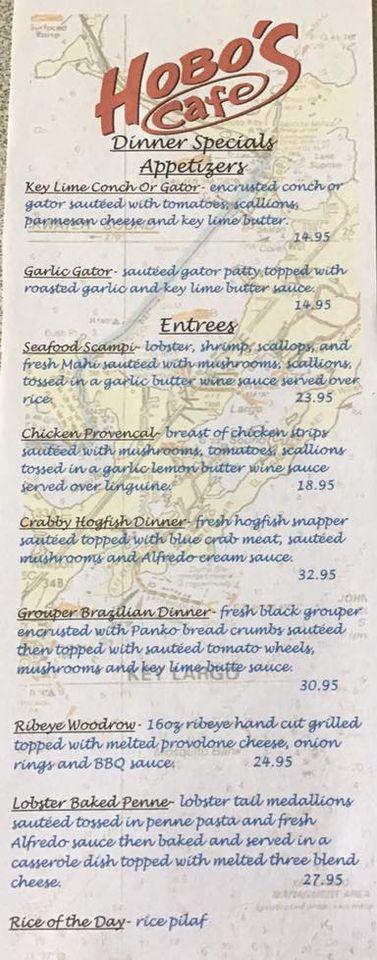 HOBO'S
Cafe
Dinner Specials
Appetizers
Key Lime Conch Or Gator- encrusted conch or
gator sautéed with tomatoes, scallions,
parmesan cheese and key lime butter.
14.95
Garlic Gator- sautéed gator patty topped with
roasted garlic and key lime butter sauce.
14.95
Entrees
Seafood Scampi- lobster, shrimp, scallops, and
fresh Mahi sautéed with mushrooms, scallions,
tossed in a garlic butter wine sauce served over
rice. 23.95
Largo
Chicken Provencal- breast of chicken strips
sautéed with mushrooms, tomatoes, scallions
tossed in a garlic lemon butter wine sauce
served over linguine. 18.95
Crabby Hogfish Dinner- fresh hogfish snapper
sautéed topped with blue crab meat, sautéed
mushrooms and Alfredo cream sauce.
34B
32.95
Grouper Brazilian Dinner- fresh black grouper
encrusted with Panko bread crumbs sautéed
then topped with sautéed tomato wheels,
mushrooms and key lime butte sauce.
KEY LARGO
30.95
Ribeye Woodrow- 16oz ribeye hand cut grilled
topped with melted provolone cheese, onion
rings and BBQ sauce. 24.95
Lobster Baked Penne- lobster tail medallions
sautéed tossed in penne pasta and fresh
Alfredo sauce then baked and served in a
casserole dish topped with melted three blend
cheese. 27.95
MANAGEMENT AREA
Rice of the Day- rice pilaf